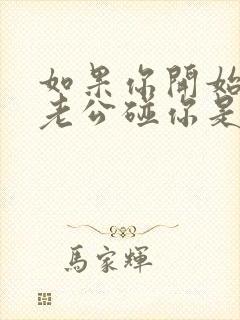 如果你開始
老公碰你是
馬家輝